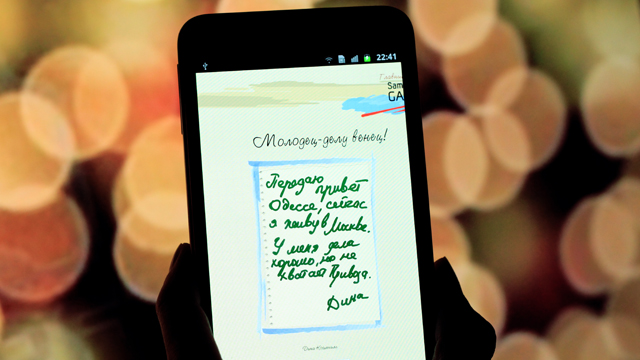 22:41
Sam
GA
Молодец-делу венец!
Передаю
привет
Одессе, сейчас
я живу в Москве.
У меня дела
хорошо, но не
хватает Привоза.
Дина